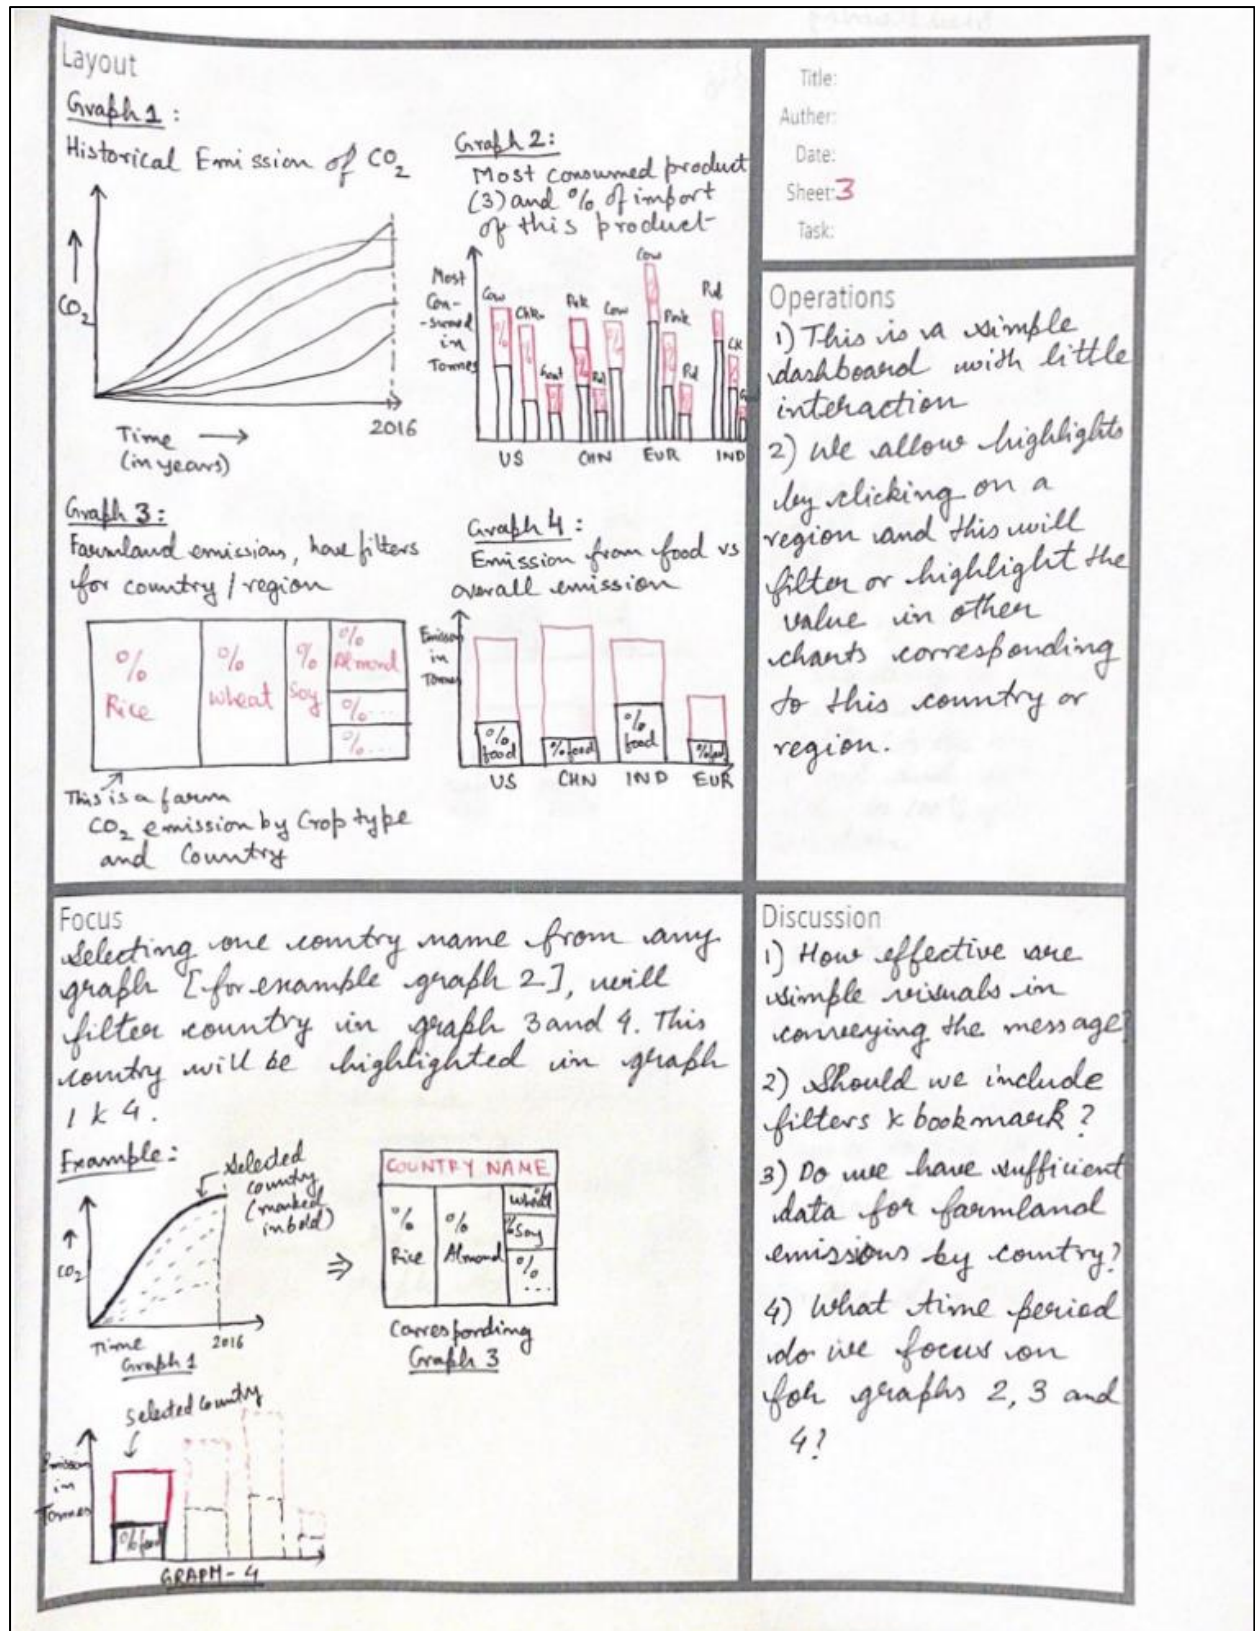 Layout
Graph 1:
Historical Emission of CO2
CO2
Time
(in years)
2016
Graph 2:
Most consumed product
(3) and % of import
of this product
Most
Con-
-sumed
in
Tonnes
Cow
Goat
Cow
Cow
Pork
%
US
CHN
EUR
IND
Graph 3:
Farmland emissions, have filters
for country / region
%
Rice
%
Wheat
%
Soy
%
Almond
%...
%...
This is a farm
CO2 emission by Crop type
and Country
Graph 4:
Emission from food vs
overall emission
Emission
in
Tonnes
%
food
% food
%
food
% food
US
CHN
IND
EUR
Title:
Auther:
Date:
Sheet: 3
Task:
Operations
1) This is a simple
dashboard with little
interaction
2) We allow highlights
by clicking on a
region and this will
filter or highlight the
value in other
charts corresponding
to this country or
region.
Focus
Selecting one country name from any
graph [for example graph 2], will
filter country in graph 3 and 4. This
country will be highlighted in graph
1 & 4.
Example:
Selected
country
(marked
in bold)
CO2
Time
2016
Graph 1
COUNTRY NAME
%
Rice
%
Almond
Wheat
% Soy
%
...
Corresponding
Graph 3
Selected Country
Emission
in
Tonnes
% food
GRAPH - 4
Discussion
1) How effective are
simple visuals in
conveying the message?
2) Should we include
filters & bookmark?
3) Do we have sufficient
data for farmland
emissions by country?
4) What time period
do we focus on
for graphs 2, 3 and
4?